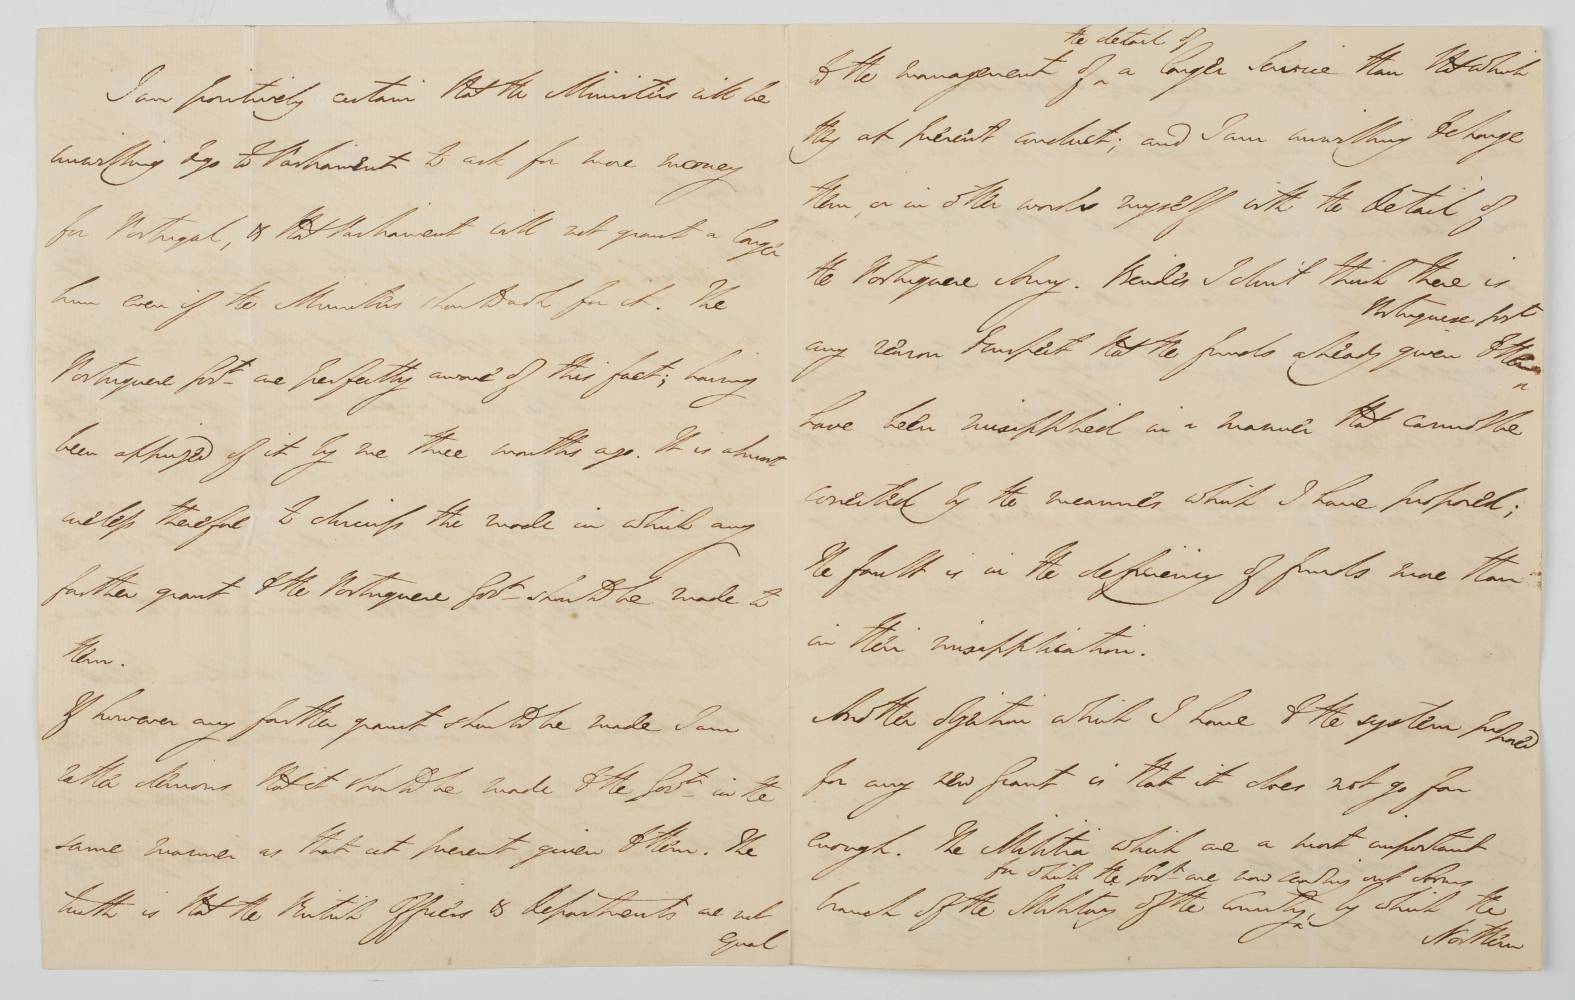 I am positively certain that the Ministers will be
unwilling to go to Parliament to ask for more money
for Portugal, & that Parliament will not grant a larger
sum even if the Ministers should ask for it. The
Portuguese Govt. are perfectly aware of this fact; having
been apprized of it by me three months ago. It is almost
useless therefore to discuss the mode in which any
further grant to the Portuguese Govt. should be made to
them.
If however any further grant should be made I am
rather desirous that it should be made to the Govt. in the
same manner as that at present given to them. The
truth is that the British Officers & Departments are not
equal
the detail of
to the management of a larger Service than that which
they at present conduct; and I am unwilling to charge
them, or in other words myself with the Detail of
the Portuguese Army. Besides I don't think there is
Portuguese Govt.
any reason to suspect that the funds already given to the
have been misapplied in a manner that cannot be
corrected by the measures which I have proposed;
the fault is in the deficiency of funds more than
in their misapplication.
Another objection which I have to the system proposed
for any new Grant is that it does not go far
enough. The Militia which are a most important
for which the Govt. are now sending out Arms
branch of the Military of the Country, by which the
Northern